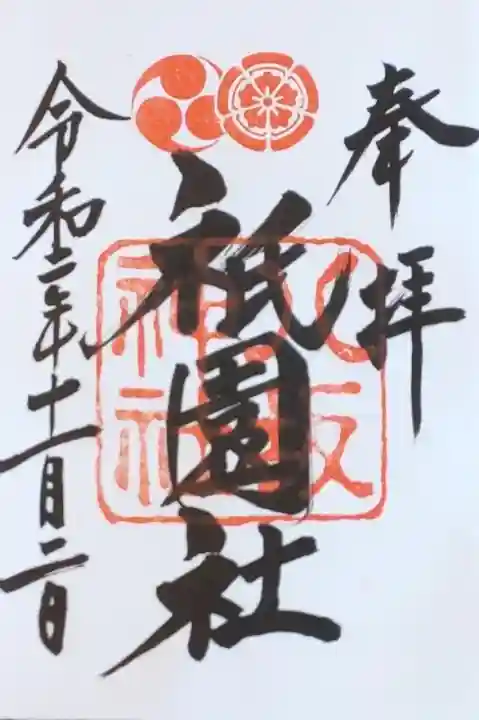 奉拝
祇園社
八坂神社
令和二年十一月二日